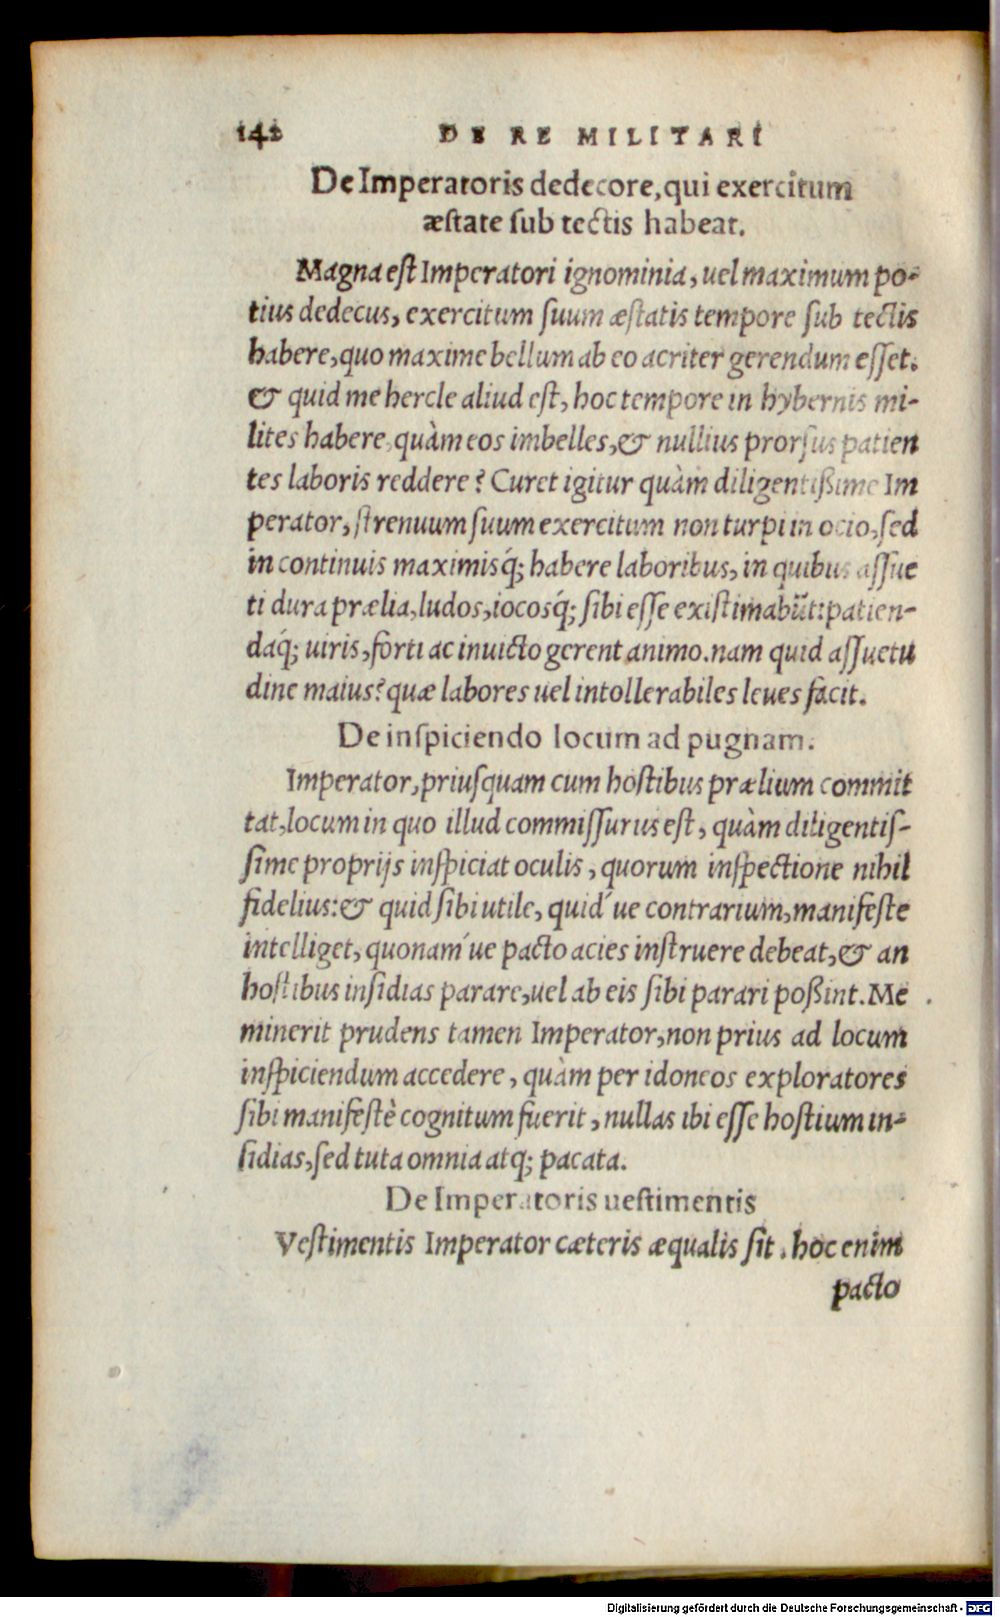 142 DE RE MILITARI
De Imperatoris dedecore, qui exercitum
æstate sub tectis habeat.
Magna est Imperatori ignominia, uel maximum po-
tius dedecus, exercitum suum æstatis tempore sub tectis
habere, quo maxime bellum ab eo acriter gerendum esset.
& quid me hercle aliud est, hoc tempore in hybernis mi-
lites habere, quàm eos imbelles, & nullius prorsus patien
tes laboris reddere? Curet igitur quàm diligentißime Im
perator, strenuum suum exercitum non turpi in ocio, sed
in continuis maximisq́; habere laboribus, in quibus assue
ti dura prælia, ludos, iocosq́; sibi esse existimabũt: patien-
daq́; uiris, forti ac inuicto gerent animo. nam quid assuetu
dine maius? quæ labores uel intollerabiles leues facit.
De inspiciendo locum ad pugnam.
Imperator, priusquam cum hostibus prælium commit
tat, locum in quo illud commissurus est, quàm diligentis-
sime proprijs inspiciat oculis, quorum inspectione nihil
fidelius: & quid sibi utile, quid´ue contrarium, manifeste
intelliget, quonam´ue pacto acies instruere debeat, & an
hostibus insidias parare, uel ab eis sibi parari poßint. Me
minerit prudens tamen Imperator, non prius ad locum
inspiciendum accedere, quàm per idoneos exploratores
sibi manifestè cognitum fuerit, nullas ibi esse hostium in-
sidias, sed tuta omnia atq; pacata.
De Imperatoris uestimentis
Vestimentis Imperator cæteris æqualis sit. hoc enim
pacto
Digitalisierung gefördert durch die Deutsche Forschungsgemeinschaft - DFG